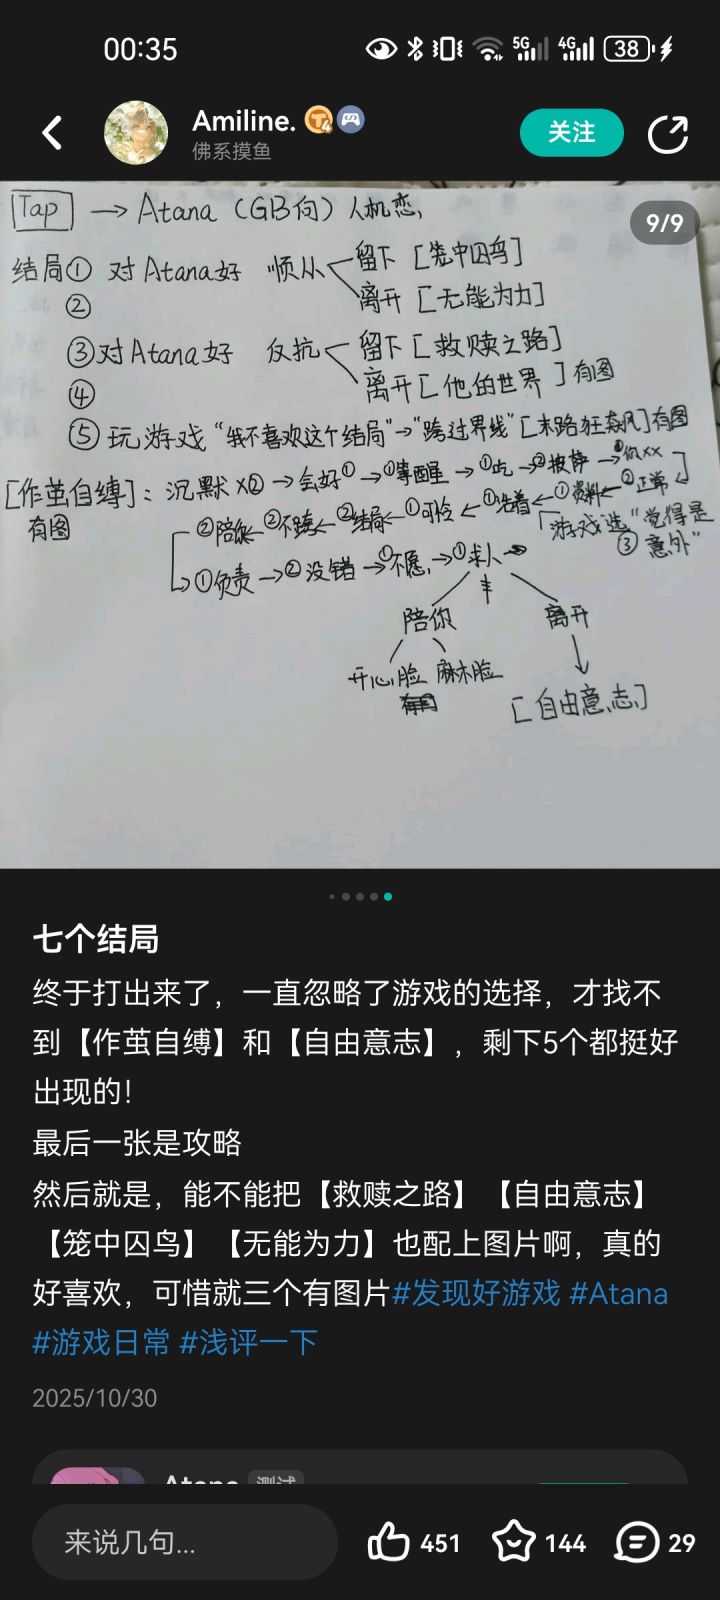 00:35
5G 4G 38
Amiline.
佛系摸鱼
关注
9/9
Tap → Atana（GB向）人机恋,
结局① 对Atana好 顺从 留下［笼中囚鸟］
② 离开［无能为力］
③对Atana好 反抗 留下［救赎之路］
④ 离开［他的世界］有图
⑤ 玩游戏“我不喜欢这个结局”→“跨过界线”［末路狂飙］有图
［作茧自缚］：沉默X② →会好① →①等醒 →①吃 →②披萨 →①你xx
有图 ②陪你←②不疼←②结局←①可怜←①先着←①资料←②正常
「游戏选“觉得是
③ 意外”
①负责→②没错→①不愿→①求人
陪你 离开
开心脸 麻木脸
有图 ［自由意志］
七个结局
终于打出来了，一直忽略了游戏的选择，才找不
到【作茧自缚】和【自由意志】，剩下5个都挺好
出现的！
最后一张是攻略
然后就是，能不能把【救赎之路】【自由意志】
【笼中囚鸟】【无能为力】也配上图片啊，真的
好喜欢，可惜就三个有图片#发现好游戏 #Atana
#游戏日常 #浅评一下
2025/10/30
Atana 测试
来说几句...
451
144
29